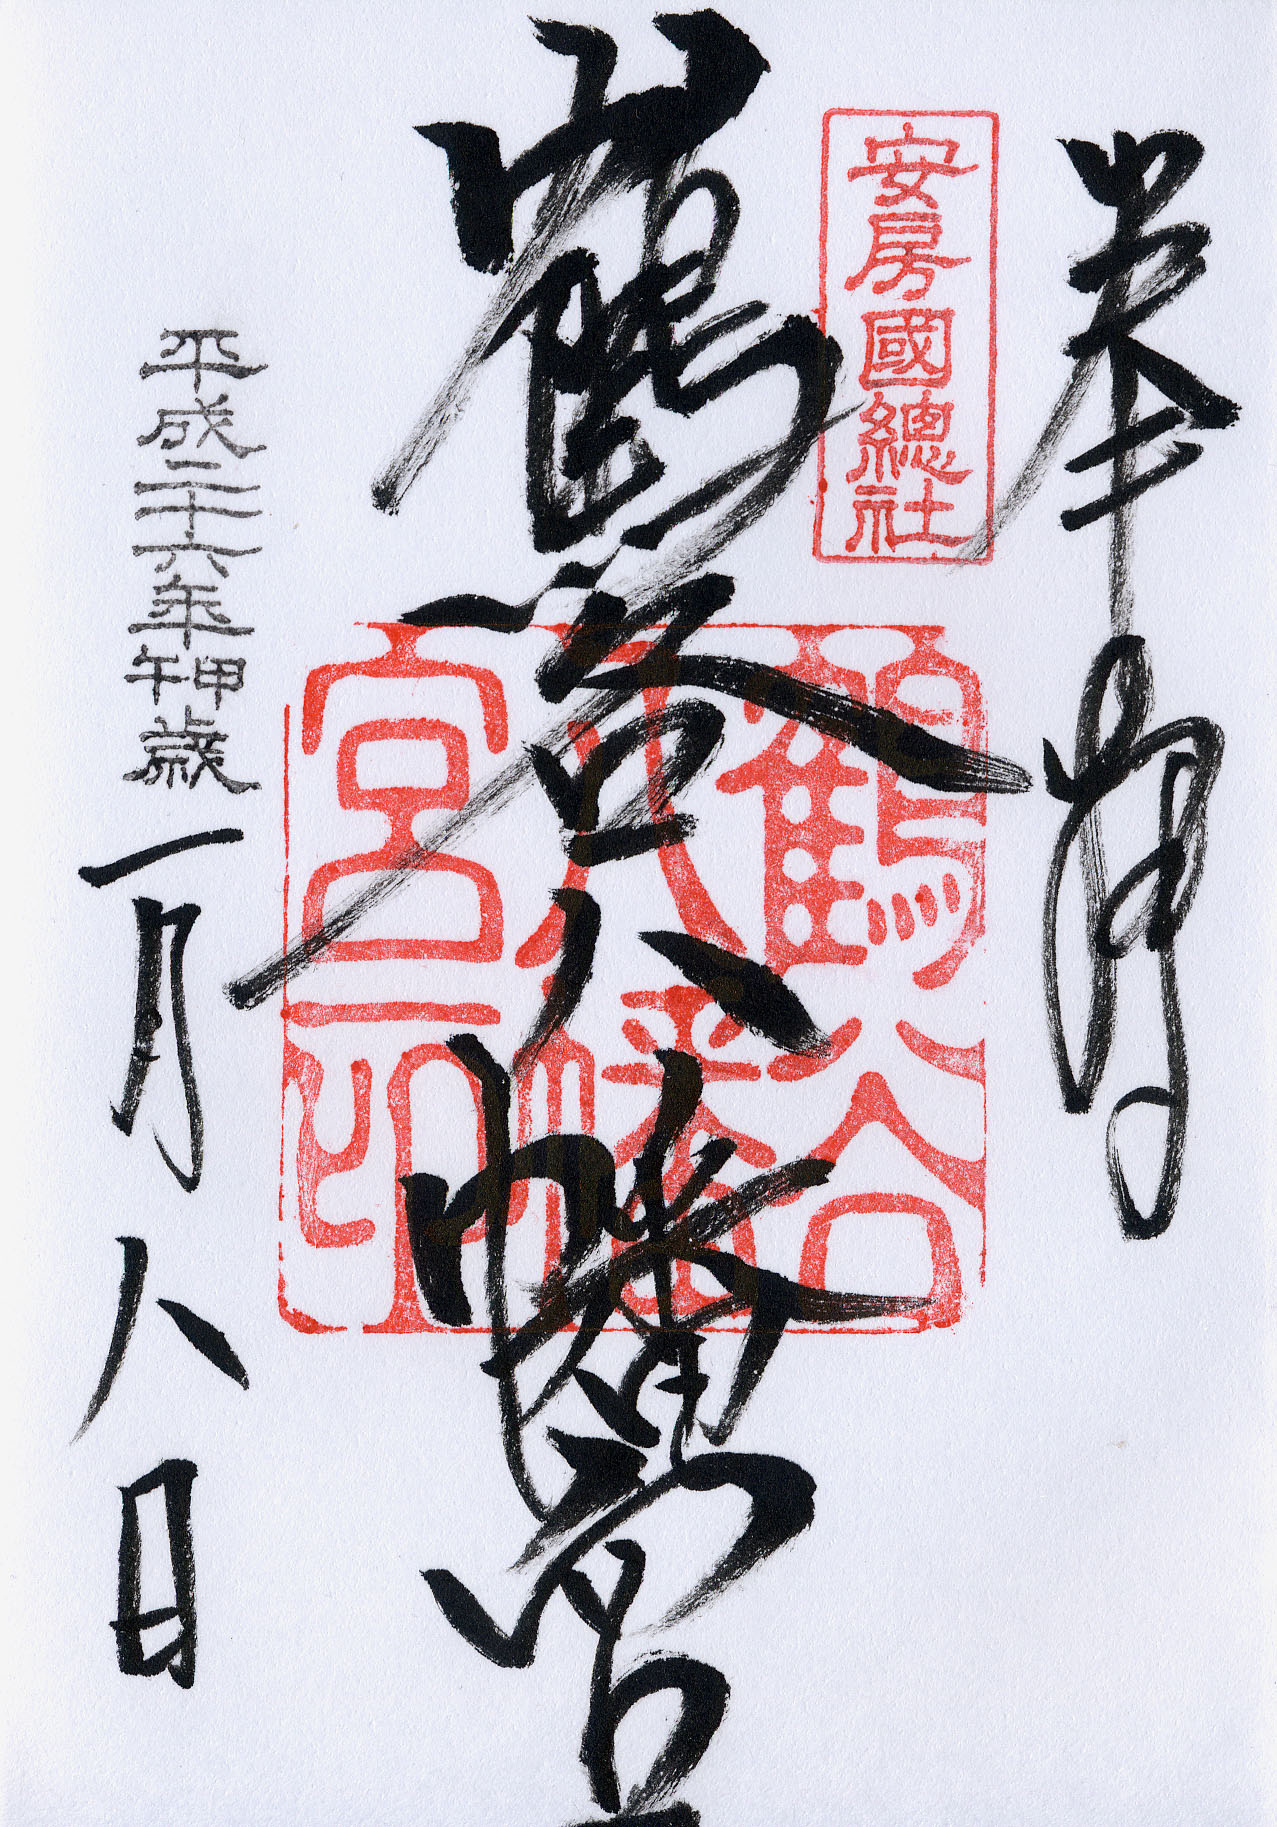 奉拝
安房國總社
鶴谷八幡宮
鶴谷
八幡
宮印
平成二十六年甲午歳一月八日